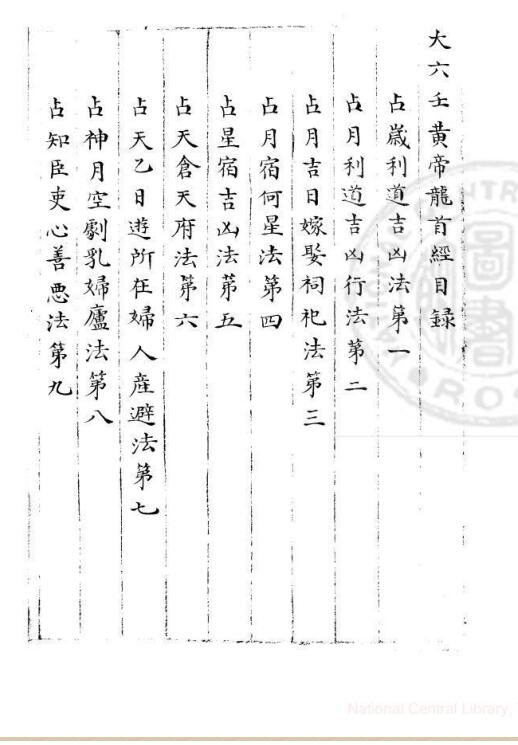 大六壬黃帝龍首經目錄
占歲利道吉凶法第一
占月利道吉凶行法第二
占月吉日嫁娶祠祀法第三
占月宿何星法第四
占星宿吉凶法第五
占天倉天府法第六
占天乙日遊所在婦人產避法第七
占神月空劇乳婦廬法第八
占知臣吏心善惡法第九
圖書
National Central Library,